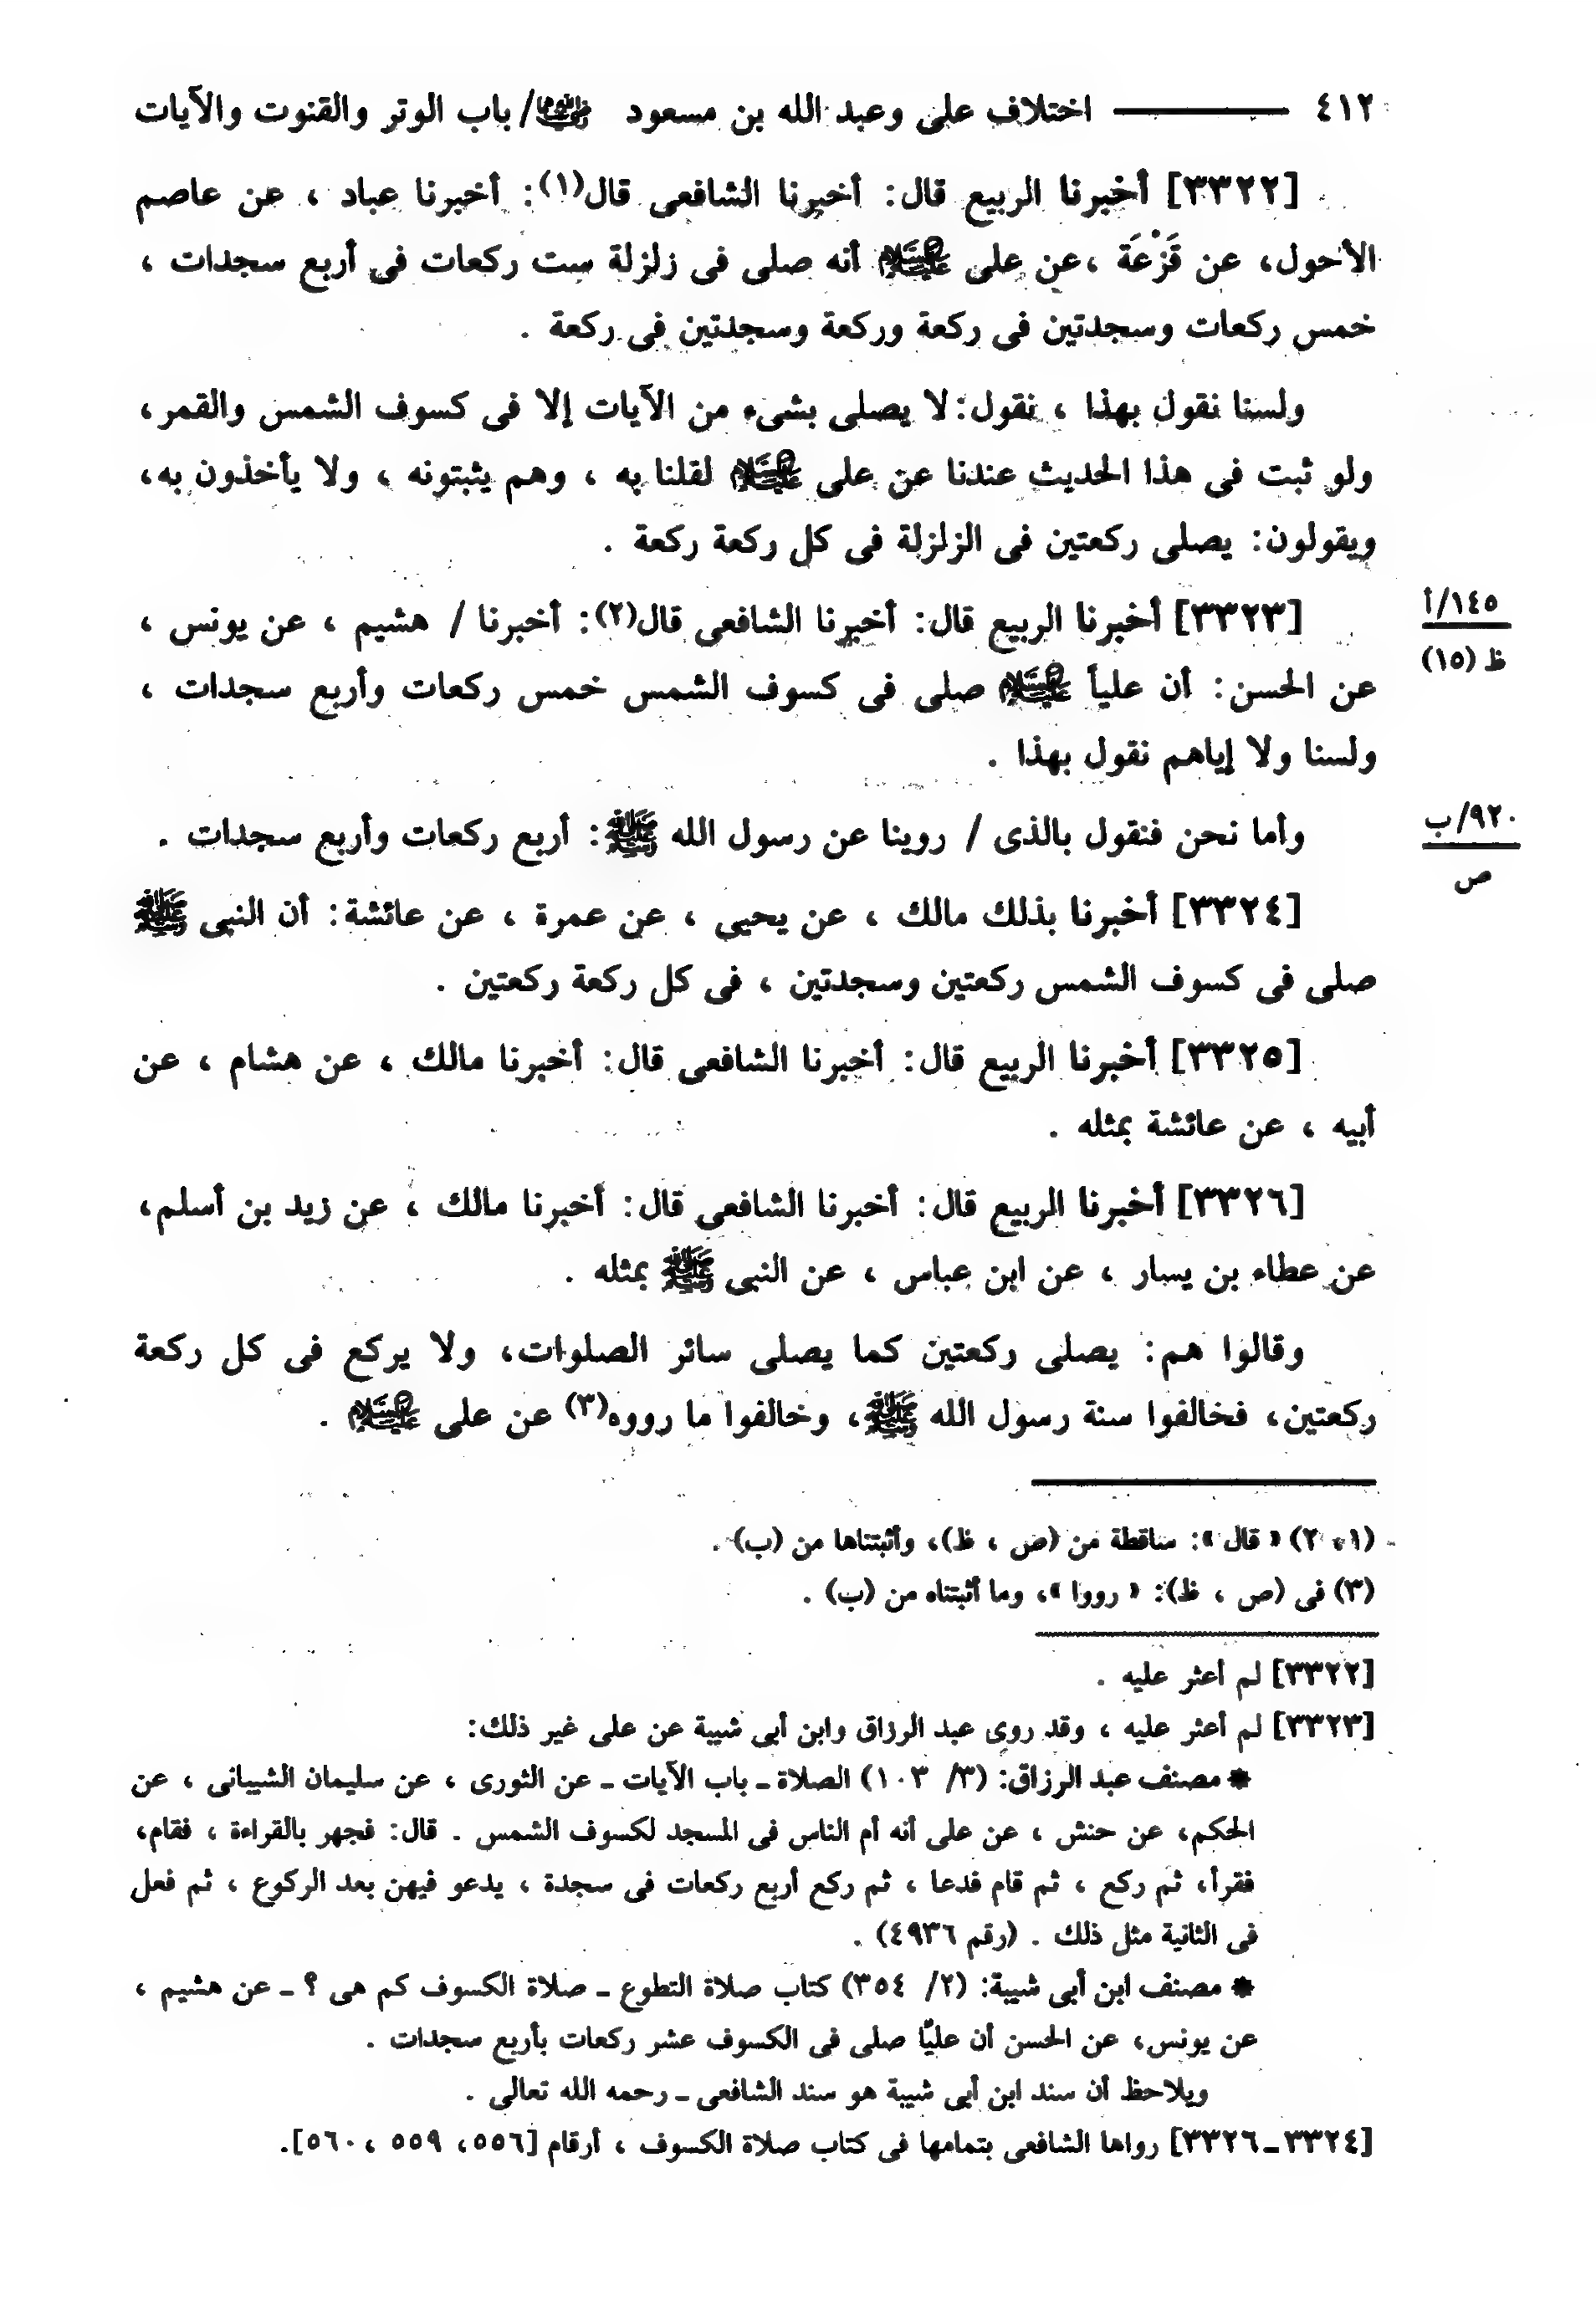 ٤١٢ ــــــــــــ اختلاف على وعبد الله بن مسعود رضي الله عنهما/ باب الوتر والقنوت والآيات
[٣٣٢٢] أخبرنا الربيع قال: أخبرنا الشافعى قال(١): أخبرنا عباد ، عن عاصم
الأحول، عن قَزْعَة ،عن على عليه السلام أنه صلى فى زلزلة ست ركعات فى أربع سجدات ،
خمس ركعات وسجدتين فى ركعة وركعة وسجدتين فى ركعة .
ولسنا نقول بهذا ، نقول: لا يصلى بشىء من الآيات إلا فى كسوف الشمس والقمر،
ولو ثبت فى هذا الحديث عندنا عن على عليه السلام لقلنا به ، وهم يثبتونه ، ولا يأخذون به،
ويقولون: يصلى ركعتين فى الزلزلة فى كل ركعة ركعة .
[٣٣٢٣] أخبرنا الربيع قال: أخبرنا الشافعى قال(٢): أخبرنا / هشيم ، عن يونس ،
١٤٥/أ
ظ (١٥)
عن الحسن: أن علياً عليه السلام صلى فى كسوف الشمس خمس ركعات وأربع سجدات ،
ولسنا ولا إياهم نقول بهذا .
وأما نحن فنقول بالذى / روينا عن رسول الله ﷺ: أربع ركعات وأربع سجدات .
٩٢٠/ب
ص
[٣٣٢٤] أخبرنا بذلك مالك ، عن يحيى ، عن عمرة ، عن عائشة: أن النبى ﷺ
صلى فى كسوف الشمس ركعتين وسجدتين ، فى كل ركعة ركعتين .
[٣٣٢٥] أخبرنا الربيع قال: أخبرنا الشافعى قال: أخبرنا مالك ، عن هشام ، عن
أبيه ، عن عائشة بمثله .
[٣٣٢٦] أخبرنا الربيع قال: أخبرنا الشافعى قال: أخبرنا مالك ، عن زيد بن أسلم،
عن عطاء بن يسار ، عن ابن عباس ، عن النبى ﷺ بمثله .
وقالوا هم: يصلى ركعتين كما يصلى سائر الصلوات، ولا يركع فى كل ركعة
ركعتين، فخالفوا سنة رسول الله ﷺ، وخالفوا ما رووه(٣) عن على عليه السلام .
(١، ٢) « قال »: ساقطة من (ص ، ظ)، وأثبتناها من (ب) .
(٣) فى (ص ، ظ): « رووا »، وما أثبتناه من (ب) .
[٣٣٢٢] لم أعثر عليه .
[٣٣٢٣] لم أعثر عليه ، وقد روى عبد الرزاق وابن أبى شيبة عن على غير ذلك:
* مصنف عبد الرزاق: (٣/ ١٠٣) الصلاة ـ باب الآيات ـ عن الثورى ، عن سليمان الشيبانى ، عن
الحكم، عن حنش ، عن على أنه أم الناس فى المسجد لكسوف الشمس . قال: فجهر بالقراءة ، فقام،
فقرأ، ثم ركع ، ثم قام فدعا ، ثم ركع أربع ركعات فى سجدة ، يدعو فيهن بعد الركوع ، ثم فعل
فى الثانية مثل ذلك . (رقم ٤٩٣٦) .
* مصنف ابن أبى شيبة: (٢/ ٣٥٤) كتاب صلاة التطوع ـ صلاة الكسوف كم هى ؟ ـ عن هشيم ،
عن يونس، عن الحسن أن عليًا صلى فى الكسوف عشر ركعات بأربع سجدات .
ويلاحظ أن سند ابن أبى شيبة هو سند الشافعى ـ رحمه الله تعالى .
[٣٣٢٤ـ٣٣٢٦] رواها الشافعى بتمامها فى كتاب صلاة الكسوف ، أرقام [٥٥٦، ٥٥٩ ،٥٦٠].